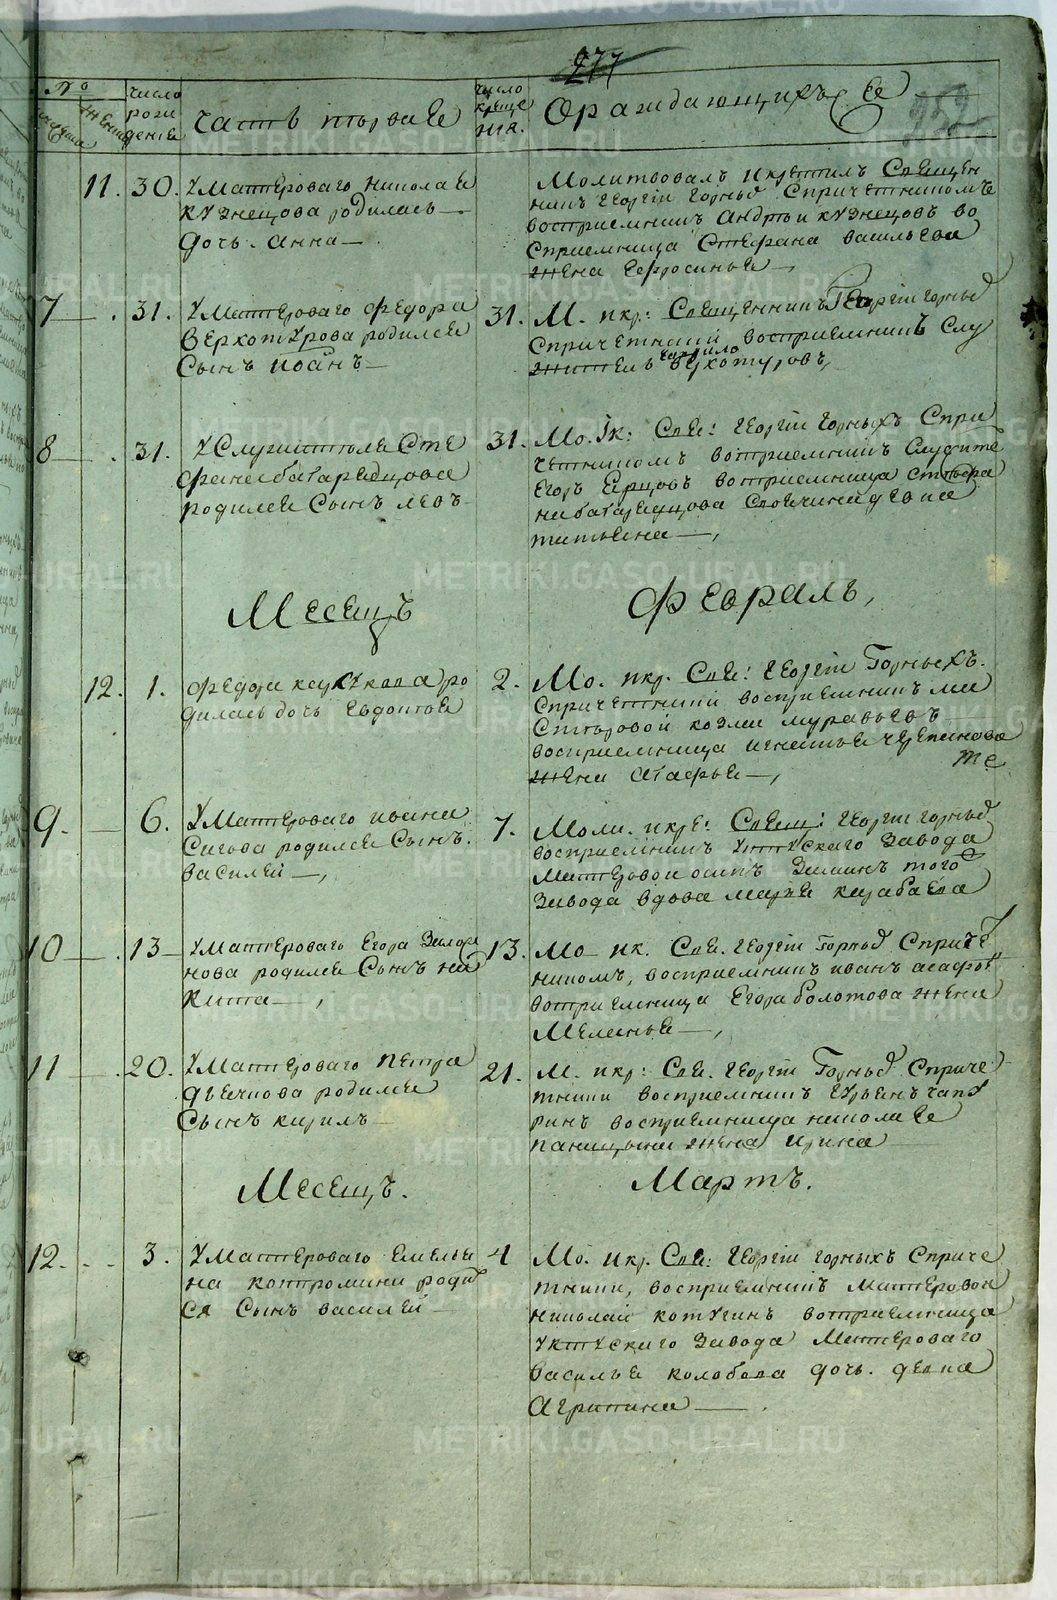 277
252
№
мужска
женска
число рождения
часть первая
число крещения
О раждающихъся
11. 30. У Мастероваго Николая
Кузнецова родилась
дочь Анна
Молитвовалъ и крестилъ Священ
никъ Георгій Горныхъ Спричетникомъ
восприемникъ Андрей Кузнецовъ во
сприемница Стефана Васильева
жена Ефросинья
7 31. У Мастероваго Федора
Верхотурова родился
Сынъ Иоанъ
31. М. и кр: Священникъ Георгій Горныхъ
Спричетники восприемникъ Слу
житель Верхотуровъ,
8 31. У Служителя Сте
фана Батараецова
родился Сынъ Левъ
31. Мо. Iк: Свя: Георгій Горныхъ Спри
четникомъ восприемникъ Служите
Егоръ Ярцовъ восприемница Стефа
на девка
татьяна
Месецъ
Февраль,
12. 1. Федора родилась дочь Евдотья
2. Мо. и кр. Свя: Георгій Горныхъ.
Спричетники восприемникъ ма
стеровой козма муравьевъ
восприемница игнатья черепанова
жена Агафья те
9. 6. У Мастероваго ивана
Сигова родился Сынъ.
василей
7. Моли. и кре: Свящ: Георгій Горныхъ
восприемникъ Уктускаго Завода
Мастеровой осипъ Зыкинъ того
Завода вдова марья карабаева
10 13 У Мастероваго Егора
родился Сынъ ни
кита
13. Мо и к. Свя. Георгій Горныхъ Сприче
никомъ, восприемникъ иванъ агафо
восприемница Егора болотова жена
Меланья
11 20. У Мастероваго Петра
дьячкова родился
Сынъ кирилъ
21. М. и кр: Свя. Георгій Горныхъ Сприче
тники восприемникъ
восприемница николая
паницына жена ирина
Месецъ.
Мартъ.
12. 3. У Мастероваго Емелья
на контромина роди
ся Сынъ василей
4 Мо. и кр. Свя: Георгій Горныхъ Сприче
тники, восприемникъ Мастеровой
николай котугинъ восприемница
Уктускаго Завода Мастероваго
василья колобова дочь. девка
Агрипина
METRIKI.GASO-URAL.RU